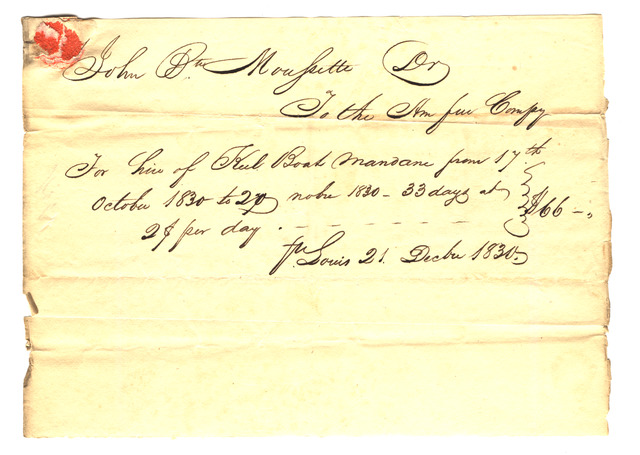 John Bte Moussette Dr
To the Am fur Compy
For hire of Keel Boat Mandane from 17th
October 1830 to 20 nobr 1830 - 33 days at
2$ per day . - - - - - - $66 -
St Louis 21. Decbr 1830